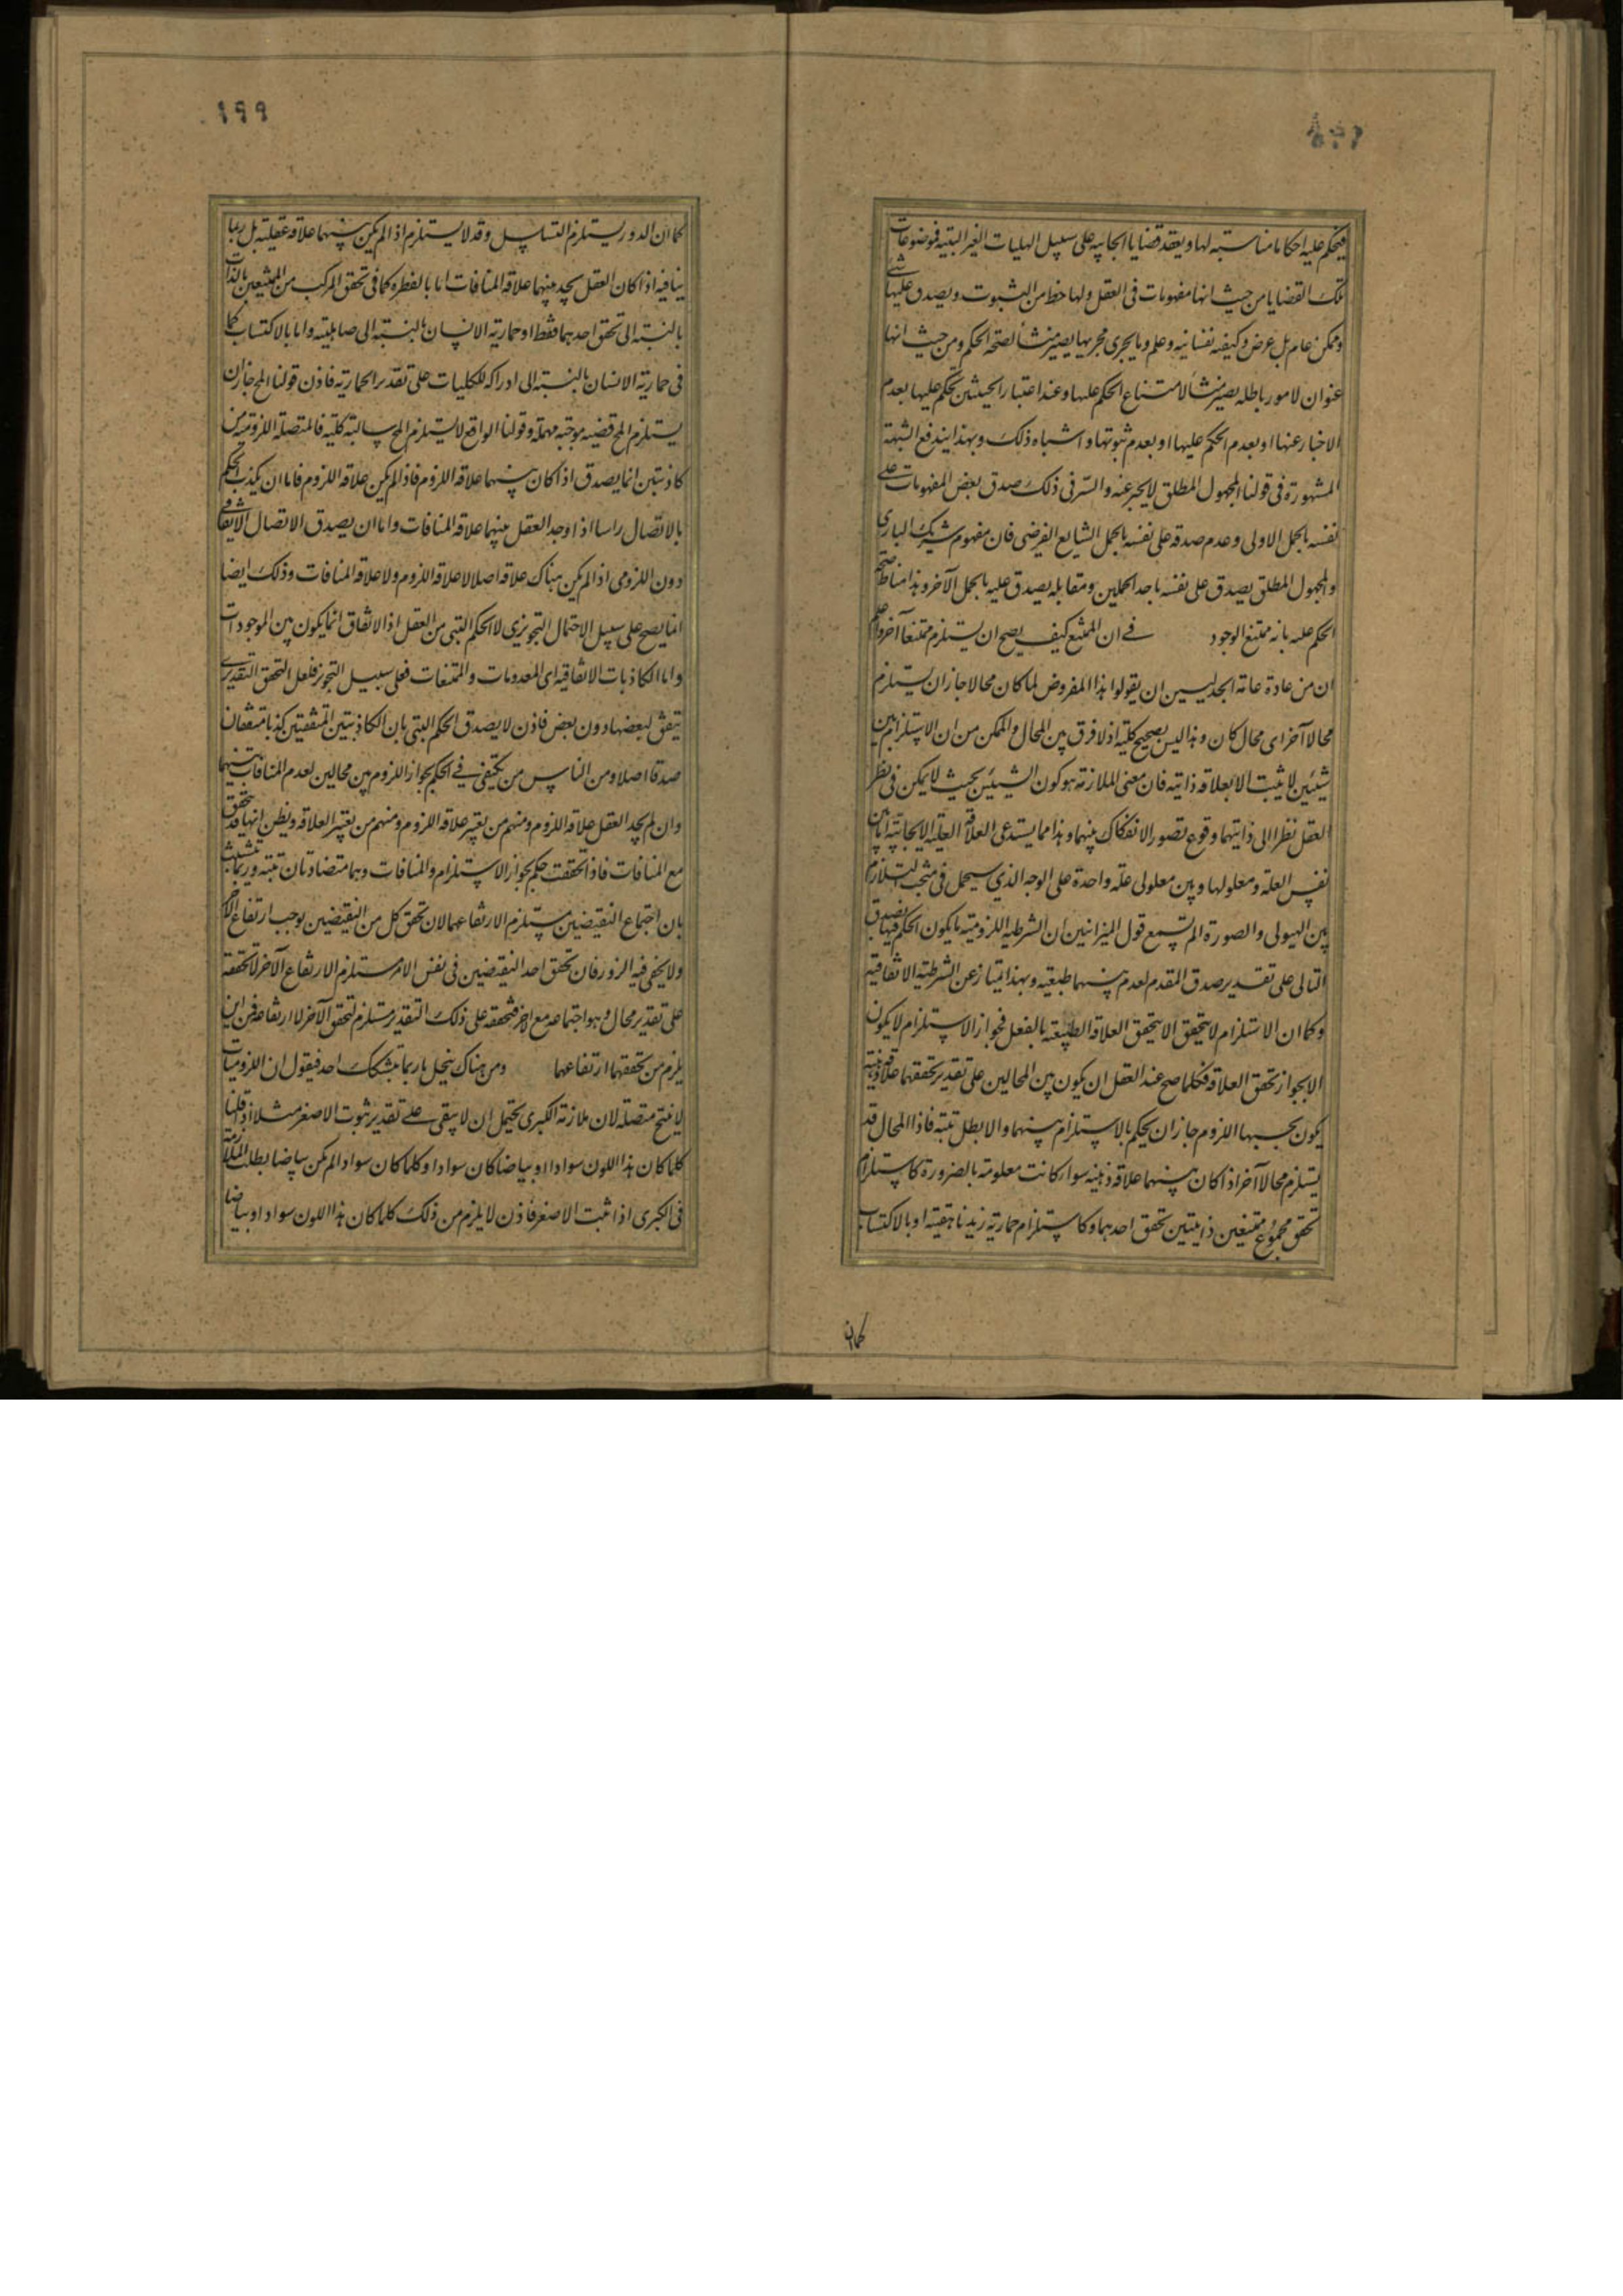 فيحكم عليه احكاما مناسبته لها ويعقد قضايا ايجابيه على سبيل الهليات الغير البتيه فموضوعات
تلك القضايا من حيث انها مفهومات فى العقل ولها حظ من الثبوت ويصدق عليها شئ
وممكن عام بل عرض وكيفيه نفسانيه وعلم وما يجرى مجريها يصير منشأ لصحه الحكم ومن حيث انها
عنوان لامور باطله يصير منشأ لامتناع الحكم عليها وعند اعتبار الحيثيتين يحكم عليها بعدم
الاخبار عنها او بعدم الحكم عليها او بعدم ثبوتها واشباه ذلك وبهذا يندفع الشبهة
المشهورة فى قولنا المجهول المطلق لايخبر عنه والسر فى ذلك صدق بعض المفهومات على
نفسه بالحمل الاولى وعدم صدقه على نفسه بالحمل الشايع العرضى فان مفهوم شريك البارى
والمجهول المطلق يصدق على نفسه باحد الحملين ومقابله يصدق عليه بالحمل الآخر وهذا مناط صحة
الحكم عليه بانه ممتنع الوجود فى ان الممتنع كيف يصح ان يستلزم ممتنعا آخر واعلم
ان من عادة عامة الجدليين ان يقولوا هذا المفروض لما كان محالا جاز ان يستلزم
محالا آخر اى محال كان وهذا ليس بصحيح كليه اذ لا فرق بين المحال والممكن من ان الاستلزام بين
شيئين لا يثبت الا بعلاقه ذاتيه فان معنى الملازمه هو كون الشيئين بحيث لا يمكن فى نظر
العقل نظرا الى ذاتيهما وقوع تصور الانفكاك بينهما وهذا مما يستدعى العلاقه العليه الايجابيه اما بين
نفس العلة ومعلولها وبين معلولى علة واحدة على الوجه الذى سيحمل فى مبحث التلازم
بين الهيولى والصورة الم تسمع قول الميزانيين ان الشرطيه اللزوميه ما يكون الحكم فيها بصدق
التالى على تقدير صدق المقدم لعدم بينهما طبيعيه وبهذا يمتاز عن الشرطيه الاتفاقيه
وكما ان الاستلزام لا يتحقق الا بتحقق العلاقه الطبيعيه بالفعل فجواز الاستلزام لا يكون
الا بجواز تحقق العلاقه فكلما صح عند العقل ان يكون بين المحالين على تقدير تحققهما علاقه ذهنيه
يكون بحسبها اللزوم جاز ان يحكم بالاستلزام بينهما والا بطل بتته فاذا المحال قد
يستلزم محالا آخر اذا كان بينهما علاقه ذهنيه سوا كانت معلومه بالضرورة كاستلزام
تحقق مجموع ممتنعين ذاتيين تحقق احدهما وكاستلزام حماريه زيد ناهقيته او بالاكتساب
كما ان
١٩٩
كما ان الدور يستلزم التسلسل وقد لا يستلزم اذا لم يكن بينهما علاقه عقليه بل ربما
ينافيه اذا كان العقل يجد بينهما علاقه المنافات اما بالفطره كما فى تحقق المركب من الممتنعين بالذات
بالنسبة الى تحقق احدهما فقط او حماريه الانسان بالنسبة الى صاهليته واما بالاكتساب كما
فى حماريه الانسان بالنسبة الى ادراكه للكليات على تقدير الحماريه فاذن قولنا المح جاز ان
يستلزم المح قضيه موجبه مهمله وقولنا الواقع لا يستلزم المح سالبه كليه فالمتصله اللزوميه من
كاذبتين انما يصدق اذا كان بينهما علاقه اللزوم فاذا لم يكن علاقه اللزوم فاما ان يكذب الحكم
بالاتصال راسا اذا وجد العقل بينهما علاقه المنافات واما ان يصدق الاتصال الاتفاقى
دون اللزومى اذا لم يكن هناك علاقه اصلا لا علاقه اللزوم ولا علاقه المنافات وذلك ايضا
انما يصح على سبيل الاحتمال التجويزى لا الحكم البتى من العقل اذ الاتفاق انما يكون بين الموجودات
واما الكاذبات الاتفاقيه اى المعدومات والممتنعات فعلى سبيل التجوز فلعل التحقق التقديرى
يتفق لبعضها دون بعض فاذن لا يصدق الحكم البتى بان الكاذبتين المتفقتين كذبا متفقتان
صدقا اصلا ومن الناس من يكتفى فى الحكم بجواز اللزوم بين محالين لعدم المنافات بينهما
وان لم يجد العقل علاقه اللزوم ومنهم من يعتبر علاقه اللزوم ومنهم من يعتبر العلاقه ويظن انها قد تتحقق
مع المنافات فاذا تحققت حكم بجواز الاستلزام والمنافات وهما متضادتان بتته وربما يتشبث
بان اجتماع النقيضين مستلزم الارتفاعهما لان تحقق كل من النقيضين يوجب ارتفاع الآخر
ولا يخفى فيه الزور فان تحقق احد النقيضين فى نفس الامر مستلزم الارتفاع الآخر لا تحققه
على تقدير محال وهو اجتماعه مع الآخر فتحققه على ذلك التقدير مستلزم لتحقق الآخر لا ارتفاعه فمن اين
يلزم من تحققهما ارتفاعهما ومن هناك ينحل ما ربما يتشكك احد فيقول ان اللزوميات
لا ينتج متصله لان ملازمه الكبرى يحتمل ان لا يبقى على تقدير ثبوت الاصغر مثلا اذا قلنا
كلما كان هذا اللون سوادا او بياضا كان سوادا وكلما كان سوادا لم يكن بياضا بطلت الملازمة
فى الكبرى اذا ثبت الاصغر فاذن لا يلزم من ذلك كلما كان هذا اللون سوادا او بياضا